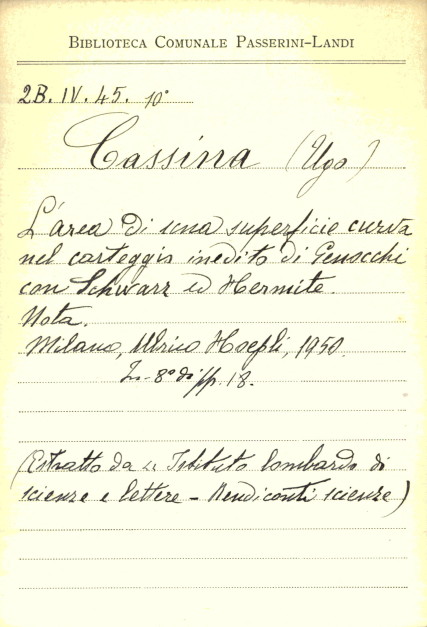 BIBLIOTECA COMUNALE PASSERINI-LANDI
2B. IV. 45. 10°
Cassina (Ugo)
L'area di una superficie curva
nel carteggio inedito di Genocchi
con Schwarz ed Hermite.
Nota.
Milano, Ulrico Hoepli, 1950.
In-8° di pp. 18.
(Estratto da " Istituto lombardo di
scienze e lettere - Rendiconti scienze)